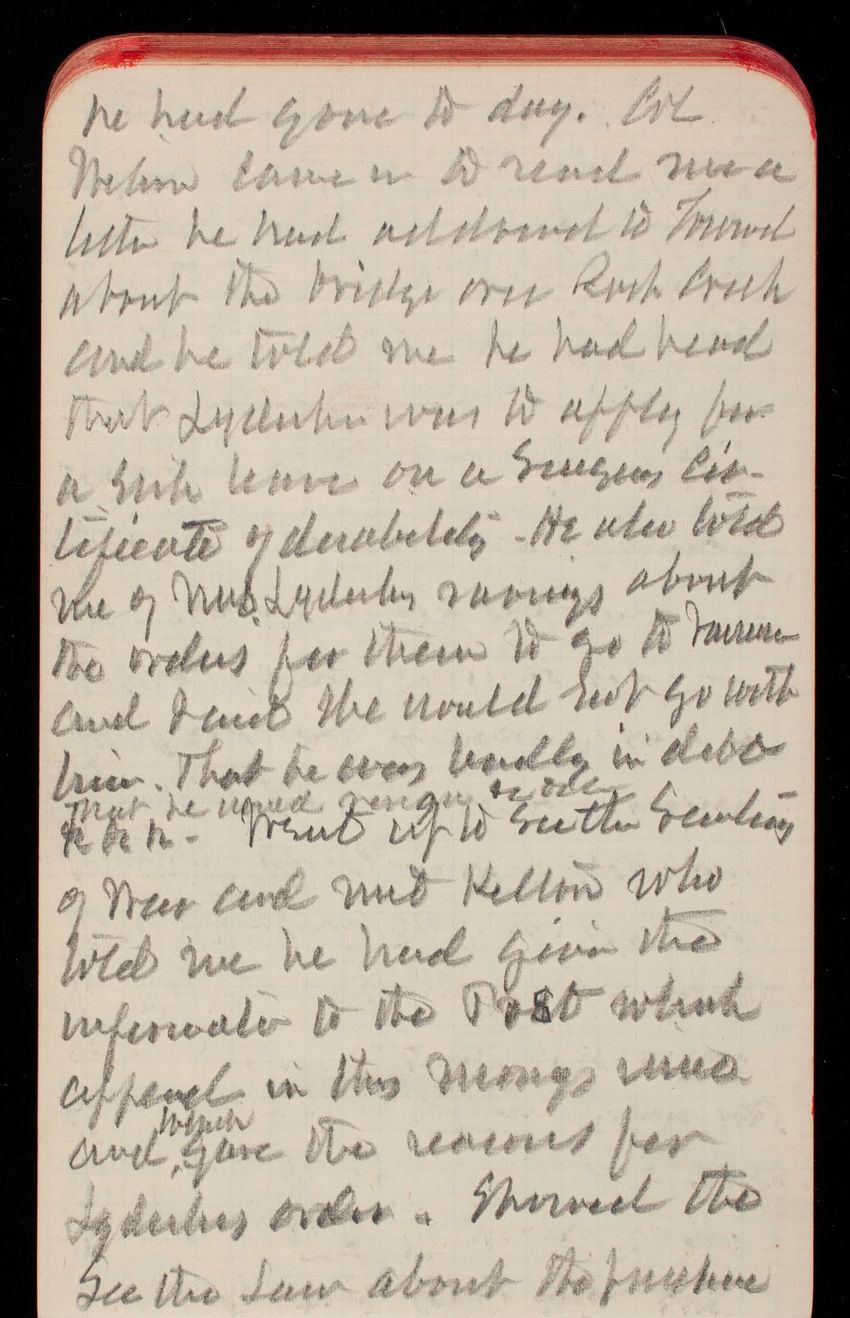 he had gone to day. Col
Wilson came in to read me a
letter he had addressed to
about the bridge over Rock Creek
and he told me he had heard
that Lydecker was to apply for
a sick leave on a Surgeons Cer-
tificate of disability. He also told
me of Mrs. Lydecker ravings about
the orders for them to go to
and said she would not go with
him. That he was badly in debt
that he would resign &c &c
Went up to See the Secretary
of War and met Kelton who
told me he had given the
information to the Post which
appeared in this mornings issue
and which gave the reasons for
Lydeckers order. Showed the
Sec the Law about the purchase